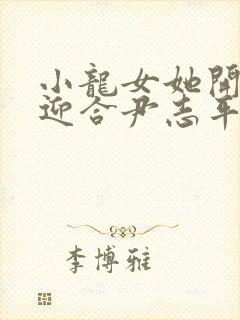 小龍女她開
迎合尹志平
李博雅